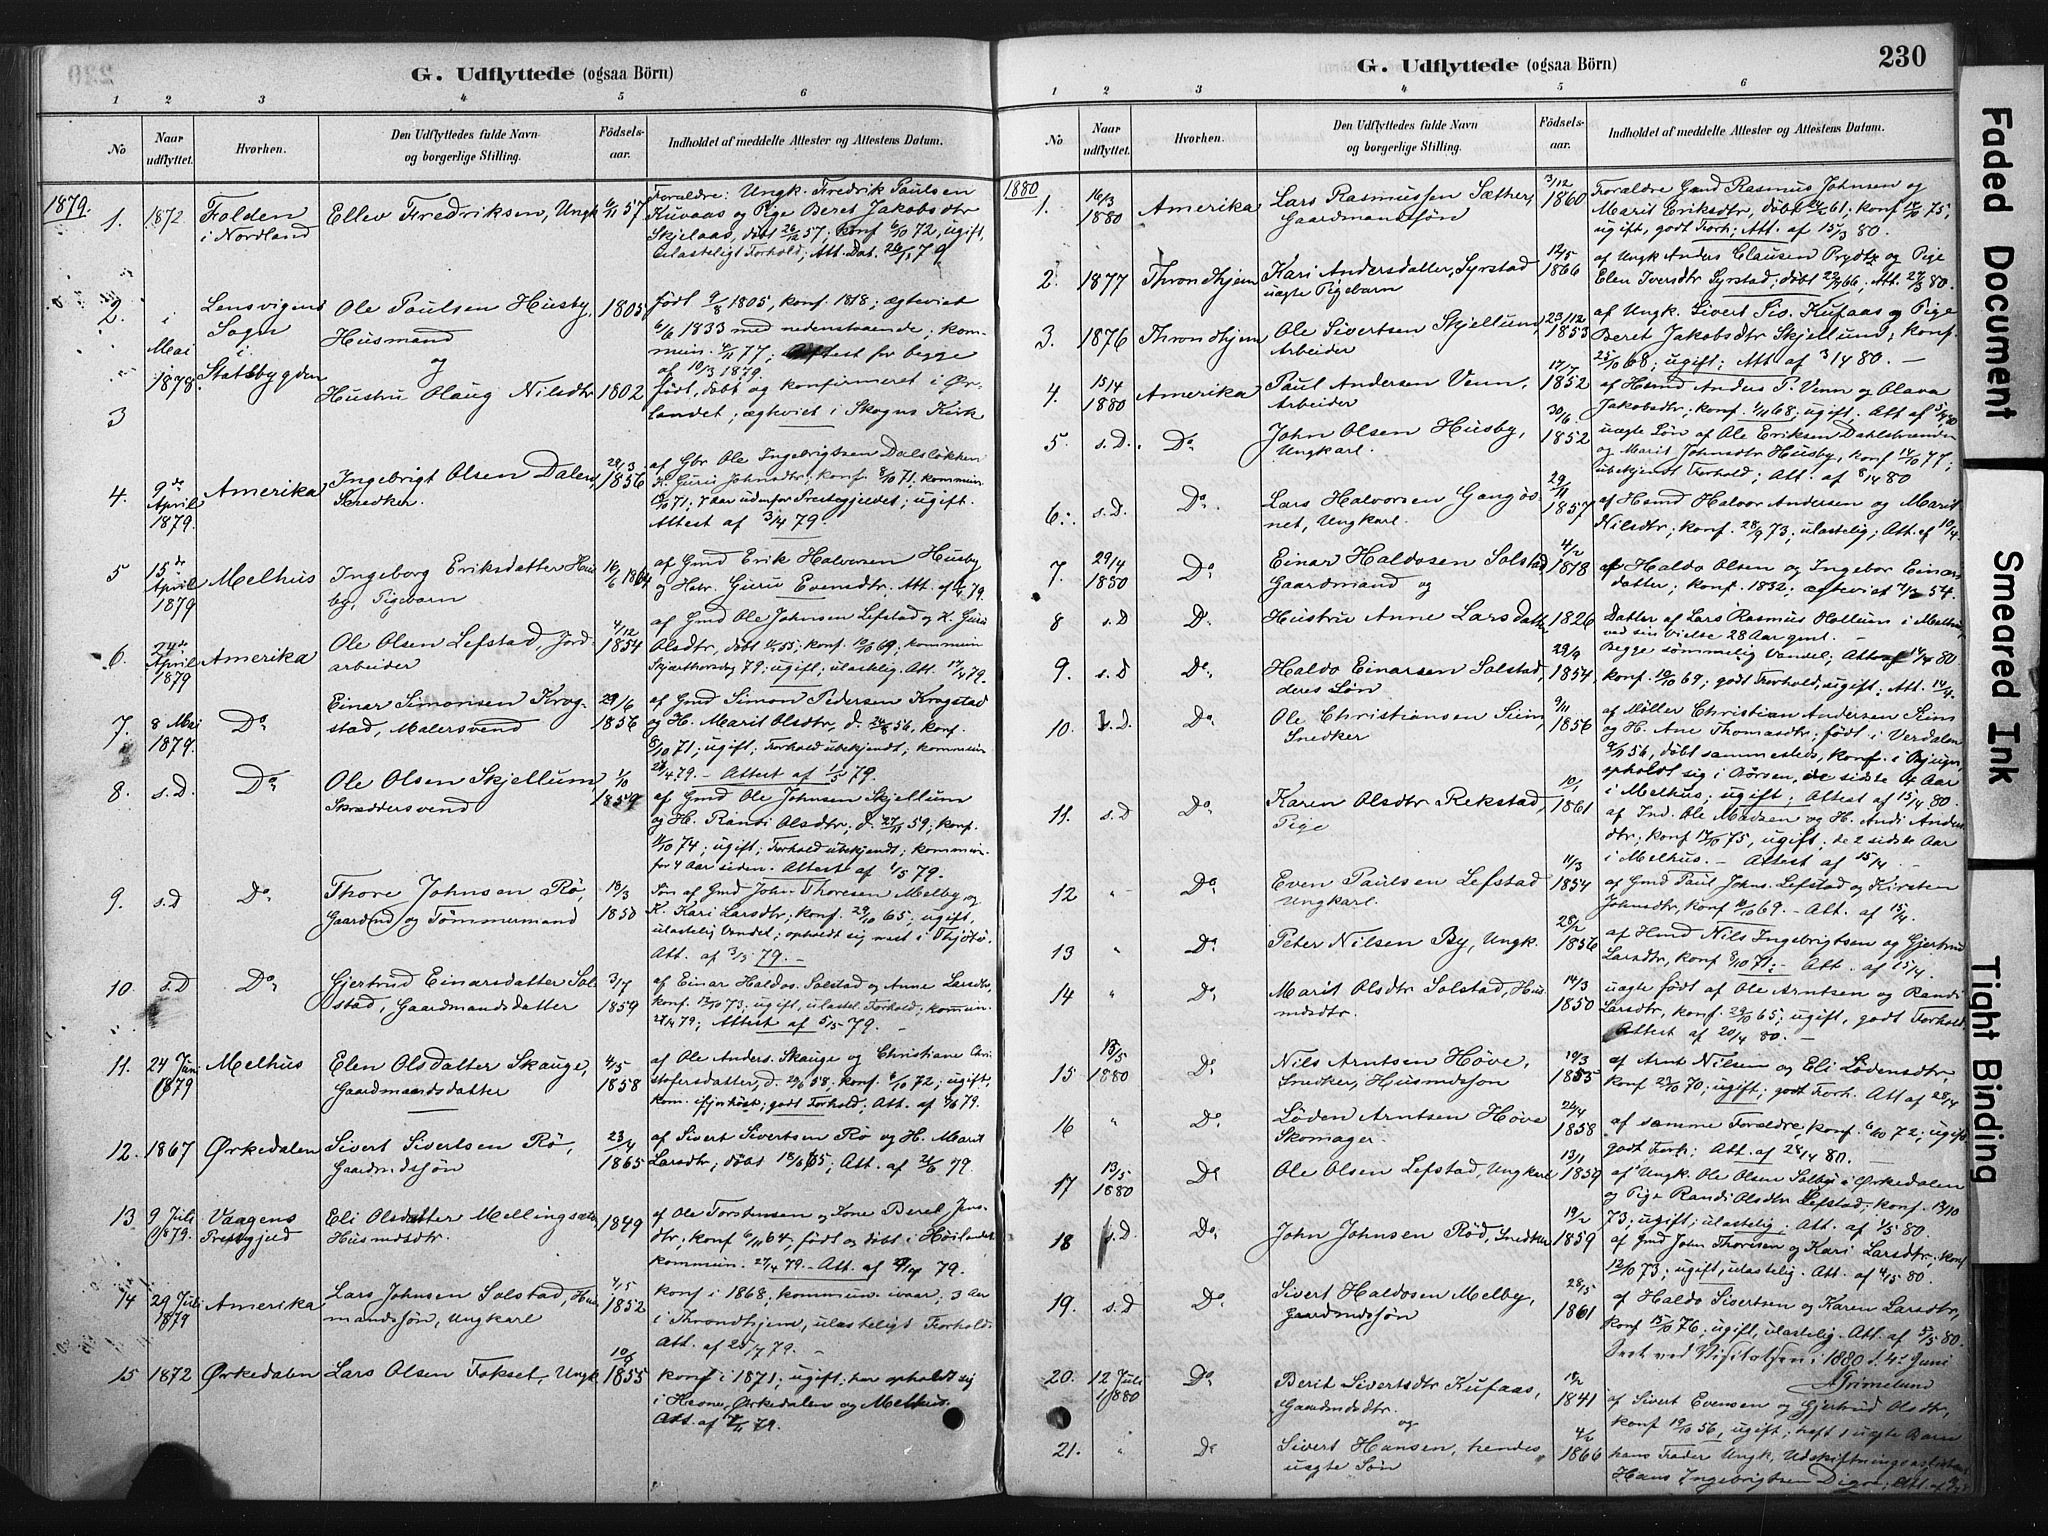 G. Udflyttede (ogsaa Börn)
1 2 3 4 5 6
No
Naar udflyttet.
Hvorhen.
Den Udflyttedes fulde Navn og borgerlige Stilling.
Födsels-aar.
Indholdet af meddelte Attester og Attestens Datum.
1879.
1. 1872 Folden i Nordland
Ellev Fredriksen, Ungk 57
Foraldre: Ungk. Fredrik Paulsen
Kuvaas og Pige Beret Jakobsdtr
Skjelaas, döbt 26/12 57; konf 6/10 72, ugift,
ulasteligt Forhold; Att. Dat. 79
2. i Mai 1878. Lensvigens Sogn i Statsbygden
Ole Paulsen Husby, Husmand 1805
og
född 9/8 1805, konf. 1818; ægteviet
6/6 1833 med nedenstaaende; kom-
mun. 77; Attest for begge
af 10/3 1879.
3
Hustru Olaug Nilsdtr 1802
född, döbt og konfirmeret i Ör-
landet; ægteviet i Skogns Kirk
4. 9de April 1879. Amerika
Ingebrigt Olsen Dalen, Snedker 29/3 1856
af Gbr. Ole Ingebrigtsen Dalsløkken
K. Guru Johnsdtr; konf. 8/10 71. kommun.
71; 7 aar udenfor Præstegjeldet; ugift.
Attest af 3/4 79.
5 15de April 1879 Melhus
Ingeborg Eriksdatter Hus-
by, Pigebarn 1864
af Gmd Erik Halvorsen Husby
og Hstr. Guru Evensdtr. Att. af 79.
6. 24de April 1879 Amerika
Ole Olsen Lefstad, Jord-
arbeider 4/12 1854
af Gmd Ole Johnsen Lefstad og K. Guru
Olsdtr, döbt 55; konf. 10/10 69; kommun
Skjærthorsdag 79; ugift; ulastelig. Att. 17/4 79.
7. 8 Mai 1879. Do
Einar Simonsen Krog-
stad, Malersvend 29/6 1856
af Gmd Simon Pedersen Krogstad
og H. Marit Olsdtr, d. 56, konf.
8/10 71; ugift; Forhold ubekjendt, kommun
79. - Attest af 1/5 79.
8. s.D. Do
Ole Olsen Skjellum
Skræddersvend 1/10 1859
af Gmd Ole Johnsen Skjellum
og H. Randi Olsdtr; d. 27/11 59; konf.
74; ugift; Forhold ubekjendt; kommun.
for 4 Aar siden. Attest af 1/5 79.
9. s.D Do
Thore Johnsen Rö,
Gaardmd og Tömmermand 18/3 1850
Sön af Gmd John Thoresen Melby, og
K. Kari Larsdtr; konf. 29/10 65; ugift,
ulastelig Vandel; opholdt sig mest i
Att. af 3/5 79. -
10 s.D Do
Gjertrud Einarsdatter Sol-
stad, Gaardmandsdatter 3/7 1859
af Einar Haldos. Solstad og Anne Larsdtr,
konf. 73; ugift, ulastel. Forhold; kommun.
79; Attest af 5/5 79. -
11. 24 Juni 1879 Melhus
Elen Olsdatter Skauge,
Gaardmandsdatter 4/5 1858
af Ole Anders. Skauge og Christiane Chri-
stofersdatter, d. 29/6 58. konf. 6/10 72; ugift,
kom. ifjorhöst; godt Forhold; Att. af 79.
12. 1867 Ørkedalen
Sivert Sivertsen Rö,
Gaardmdssön 23/4 1865
af Sivert Sivertsen Rö og H. Marit
Larsdtr; döbt 18/6 65; Att. af 79.
13. 9 Juli 1879. Vaagens Prestegjeld
Eli Olsdatter Mellingsæter
Husmdsdtr. 1849
af Ole Torstensen og Kone Beret Jens-
dtr; konf 6/11 64, födt og döbt i Höilandet
kommun. 27/4 79. - Att. af 79.
14 29 Juli 1879 Amerika
Lars Johnsen Solstad, Hus-
mandssön, Ungkarl 4/5 1852
konf i 1868; kommun. ivaar; 3 Aar
i Throndhjem, ulasteligt Forhold.
Att. af 79. -
15 1872 Ørkedalen
Lars Olsen Fokset, Ungk 1855
konf i 1871; ugift; har opholdt sig
i Hevne, Ørkedalen og Melhus.
Att. af 79.
G. Udflyttede (ogsaa Börn)
230
1 2 3 4 5 6
No
Naar udflyttet.
Hvorhen.
Den Udflyttedes fulde Navn og borgerlige Stilling.
Födsels-aar.
Indholdet af meddelte Attester og Attestens Datum.
1880
1. 16/3 1880 Amerika
Lars Rasmussen Sæther,
Gaardmandssön 3/12 1860
Foraldre Gmd Rasmus Johnsen og
Marit Eriksdtr, döbt 61; konf 75,
ugift, godt Forh; Att. af 15/3 80.
2. 1877 Throndhjem
Kari Andersdatter, Syrstad
uægte Pigebarn 12/5 1866
af Ungk Anders Clausen Prydtz og Pige
Elen Iversdtr Syrstad; döbt 66; Att. 80.
3. 1876 Throndhjem
Ole Sivertsen Skjellum,
Arbeider 23/12 1853
af Ungk. Sivert Siv. Kufaas og Pige
Beret Jakobsdtr Skjellum; konf.
25/10 68; ugift; Att af 3/4 80. -
4. 15/4 1880 Amerika
Paul Andersen Venn,
Arbeider 17/7 1852
af Hsmd Anders P. Venn og Olava
Jakobsdtr; konf. 68; ugift. Att af
5. s.D. Do
John Olsen Husby,
Ungkarl. 30/6 1852
uægte Sön af Ole Eriksen Dahlstranden
og Marit Johnsdtr Husby, konf 14/10 77;
ubekjendt Forhold; Att. af 8/4 80
6. s.D. Do
Lars Halvorsen Gangös-
net, Ungkarl. 29/11 1857
af Hsmd Halvor Andersen og Marit
Nilsdtr; konf. 28/9 73, ulastelig; Att. af 10/4.
7. 29/4 1880 Do
Einar Haldosen Solstad
Gaardmand og 4/2 1818
af Haldo Olsen og Ingebor Einars-
datter; konf. 1832; ægteviet 54.
8 s.D D.
Hustru Anne Larsdatter 1826
Datter af Lars Rasmus Hollum i Melhus,
ved sin Vielse 28 Aar gml. -
Begge sömmelig Vandel; Att af 14/4 80.
9. s.D Do
Haldo Einarsen Solstad,
deres Sön 29/9 1854
konf. 10/10 69; godt Forhold, ugift; Att. 14/4.
10 s.D. Do
Ole Christiansen Siim
Snedker 9/11 1856
af Möller Christian Andersen Siim
og H. Ane Thomasdtr; födt i Verdalen
56, döbt sammesteds, konf. i Bjugn,
opholdt sig i Börsen, de sidste 4 Aar
i Melhus; ugift; Attest af 15/4 80.
11. s.D Do
Karen Olsdtr Rekstad,
Pige 10/1 1861
af Ind. Ole Madsen og H. Andi Anders-
dtr; konf 17/10 75, ugift; de 2 sidste Aar
i Melhus. - Attest af 15/4. -
12 " Do
Even Paulsen Lefstad
Ungkarl. 11/3 1854
af Gmd Paul Johns. Lefstad og Kirsten
Johnsdtr, konf 10/10 69. - Att. af 15/4.
13 " Do
Peter Nilsen By, Ungk. 28/2 1856
af Hmd Nils Ingebrigtsen og Gjertrud
Larsdtr, konf 8/10 71; - Att. af 15/4.
14 " Do
Marit Olsdtr Solstad, Hus-
mdsdtr. 14/3 1850
uægte födt af Ole Arntsen og Randi
Larsdtr, konf. 29/10 65; ugift, godt Forhold,
Attest af 20/4 80. -
15 13/5 1880 Do
Nils Arntsen Höve,
Snedker, Husmdssön 19/3 1855
af Arnt Nilsen og Eli Lödensdtr,
konf 70; ugift; godt Forh. Att af 28/4
16 " Do
Löden Arntsen Höve
Skomager. 26/4 1858
af samme Foraldre, konf. 6/10 72; ugift
godt Forh; Att. af 28/4 80. -
17 13/5 1880 Do
Ole Olsen Lefstad, Ungkarl 13/1 1859
af Ungk. Ole Olsen Solby i Ørkedalen
og Pige Randi Olsdtr Lefstad; konf. 13/10
73; ugift; ulastelig. Att. af 1/5 80.
18 s.D. Do
John Johnsen Röd, Snedker 19/2 1859
af Gmd John Thoresen og Kari Larsdtr; konf
12/10 73; ugift, ulastelig. Att. af 4/5 80.
19. s.D Do
Sivert Haldosen Melby,
Gaardmdssön 28/5 1861
af Haldo Sivertsen og Karen Larsdtr,
konf 15/10 76; ugift, ulastelig. Att. af 80.
Seet ved Visitatsen i 1880 d. 4de Juni
A Grimelund
20. 12 Juli 1880 Do
Berit Sivertsdtr Kufaas,
Gaardmdsdtr. 1841
og
af Sivert Evensen og Gjertrud Olsdtr,
konf 19/10 56, ugift; haft 1 uægte Barn
21. " Do
Sivert Hansen, hendes
uægte Sön 4/2 1866
hans Fader Ungk. Udskiftningsassistent
Hans Ingebrigtsen Digre; Att. af
Faded Document
Smeared Ink
Tight Binding